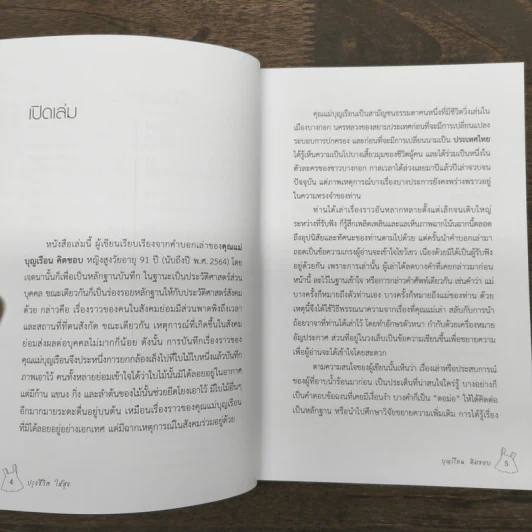 เปิดเล่ม
หนังสือเล่มนี้ ผู้เขียนเรียบเรียงจากคำบอกเล่าของคุณแม่
บุญเรือน คิดชอบ หญิงสูงวัยอายุ 91 ปี (นับถึงปี พ.ศ. 2564) โดย
เจตนานั้นก็เพื่อเป็นหลักฐานบันทึก ในฐานะเป็นประวัติศาสตร์ส่วน
บุคคล ขณะเดียวกันก็เป็นร่องรอยหลักฐานให้กับประวัติศาสตร์สังคม
ด้วย กล่าวคือ เรื่องราวของคนในสังคมย่อมมีส่วนพาดพิงถึงเวลา
และสถานที่ที่ตนสังกัด ขณะเดียวกัน เหตุการณ์ที่เกิดขึ้นในสังคม
ย่อมส่งผลต่อบุคคลไม่มากก็น้อย ดังนั้น การบันทึกเรื่องราวของ
คุณแม่บุญเรือนจึงประหนึ่งการยกกล้องเล็งไปที่ใบไม้ใบหนึ่งแล้วบันทึก
ภาพเอาไว้ คนทั้งหลายย่อมเข้าใจได้ว่าใบไม้นั้นมิได้ลอยอยู่ในอากาศ
แต่มีก้าน แขนง กิ่ง และลำต้นของไม้นั้นช่วยยึดโยงเอาไว้ มีใบไม้อื่นๆ
อีกมากมายระดะดื่นอยู่บนต้น เหมือนเรื่องราวของคุณแม่บุญเรือน
ที่มิได้ลอยอยู่อย่างเอกเทศ แต่มีฉากเหตุการณ์ในสังคมร่วมอยู่ด้วย
4 ปรุงชีวิต ให้สุข
คุณแม่บุญเรือนเป็นสามัญชนธรรมดาคนหนึ่งที่มีชีวิตวิ่งเล่นใน
เมืองบางกอก นครหลวงของสยามประเทศก่อนที่จะมีการเปลี่ยนแปลง
ระบอบการปกครอง และก่อนที่จะมีการเปลี่ยนนามเป็น ประเทศไทย
ได้รู้เห็นความเป็นไปบางเสี้ยวมุมของชีวิตผู้คน และได้ร่วมเป็นหนึ่งใน
ตัวละครของชาวบางกอก กาลเวลาได้ล่วงเลยมาปีแล้วปีเล่าจวบจน
ปัจจุบัน แต่ภาพเหตุการณ์บางเรื่องบางประการยังคงพร่างพราวอยู่
ในความทรงจำของท่าน
ท่านได้เล่าเรื่องราวอันหลากหลายตั้งแต่เล็กจนเติบใหญ่
ระหว่างที่รับฟัง ก็รู้สึกเพลิดเพลินและแลเห็นภาพฉากโน้นฉากนี้ตลอด
ถึงอุปนิสัยและทัศนะของท่านตามไปด้วย แต่ครั้นนำคำบอกเล่ามา
ถอดเป็นข้อความเกรงผู้อ่านจะเข้าใจไขว้เขว เนื่องด้วยมิได้เป็นผู้รับฟัง
อยู่ด้วยกัน เพราะการเล่านั้น ผู้เล่าได้ลดบางคำที่เคยกล่าวมาก่อน
หน้านี้ ละไว้ในฐานเข้าใจ หรือการกล่าวคำศัพท์เดียวกัน เช่นคำว่า แม่
บางครั้งก็หมายถึงตัวท่านเอง บางครั้งก็หมายถึงแม่ของท่าน ด้วย
เหตุนี้จึงได้ใช้วิธีพรรณนาความจากเรื่องที่คุณแม่เล่า สลับกับการนำ
ถ้อยวาจาที่ท่านได้เล่าไว้ โดยทำอักษรตัวหนา กำกับด้วยเครื่องหมาย
อัญประกาศ ส่วนที่อยู่ในวงเล็บเป็นข้อความเขียนขึ้นเพื่อขยายความ
เพื่อผู้อ่านจะได้เข้าใจโดยสะดวก
ตามความสนใจของผู้เขียนนั้นเห็นว่า เรื่องเล่าหรือประสบการณ์
ของผู้ที่อาบน้ำร้อนมาก่อน เป็นประเด็นที่น่าสนใจใคร่รู้ บางอย่างก็
เป็นคำตอบข้อฉงนที่เคยมีเงื่อนงำ บางคำก็เป็น "ตอม่อ" ให้ได้คิดต่อ
เป็นหลักฐาน หรือนำไปศึกษาวิจัยขยายความเพิ่มเติม การได้รู้เรื่อง
บุญเรือน คิดชอบ 5